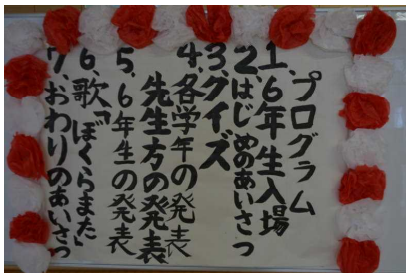 プログラム
1、6年生入場
2、はじめのあいさつ
3、クイズ
4、各学年の発表
先生方の発表
5、6年生の発表
6、歌「ぼくらまた」
7、おわりのあいさつ